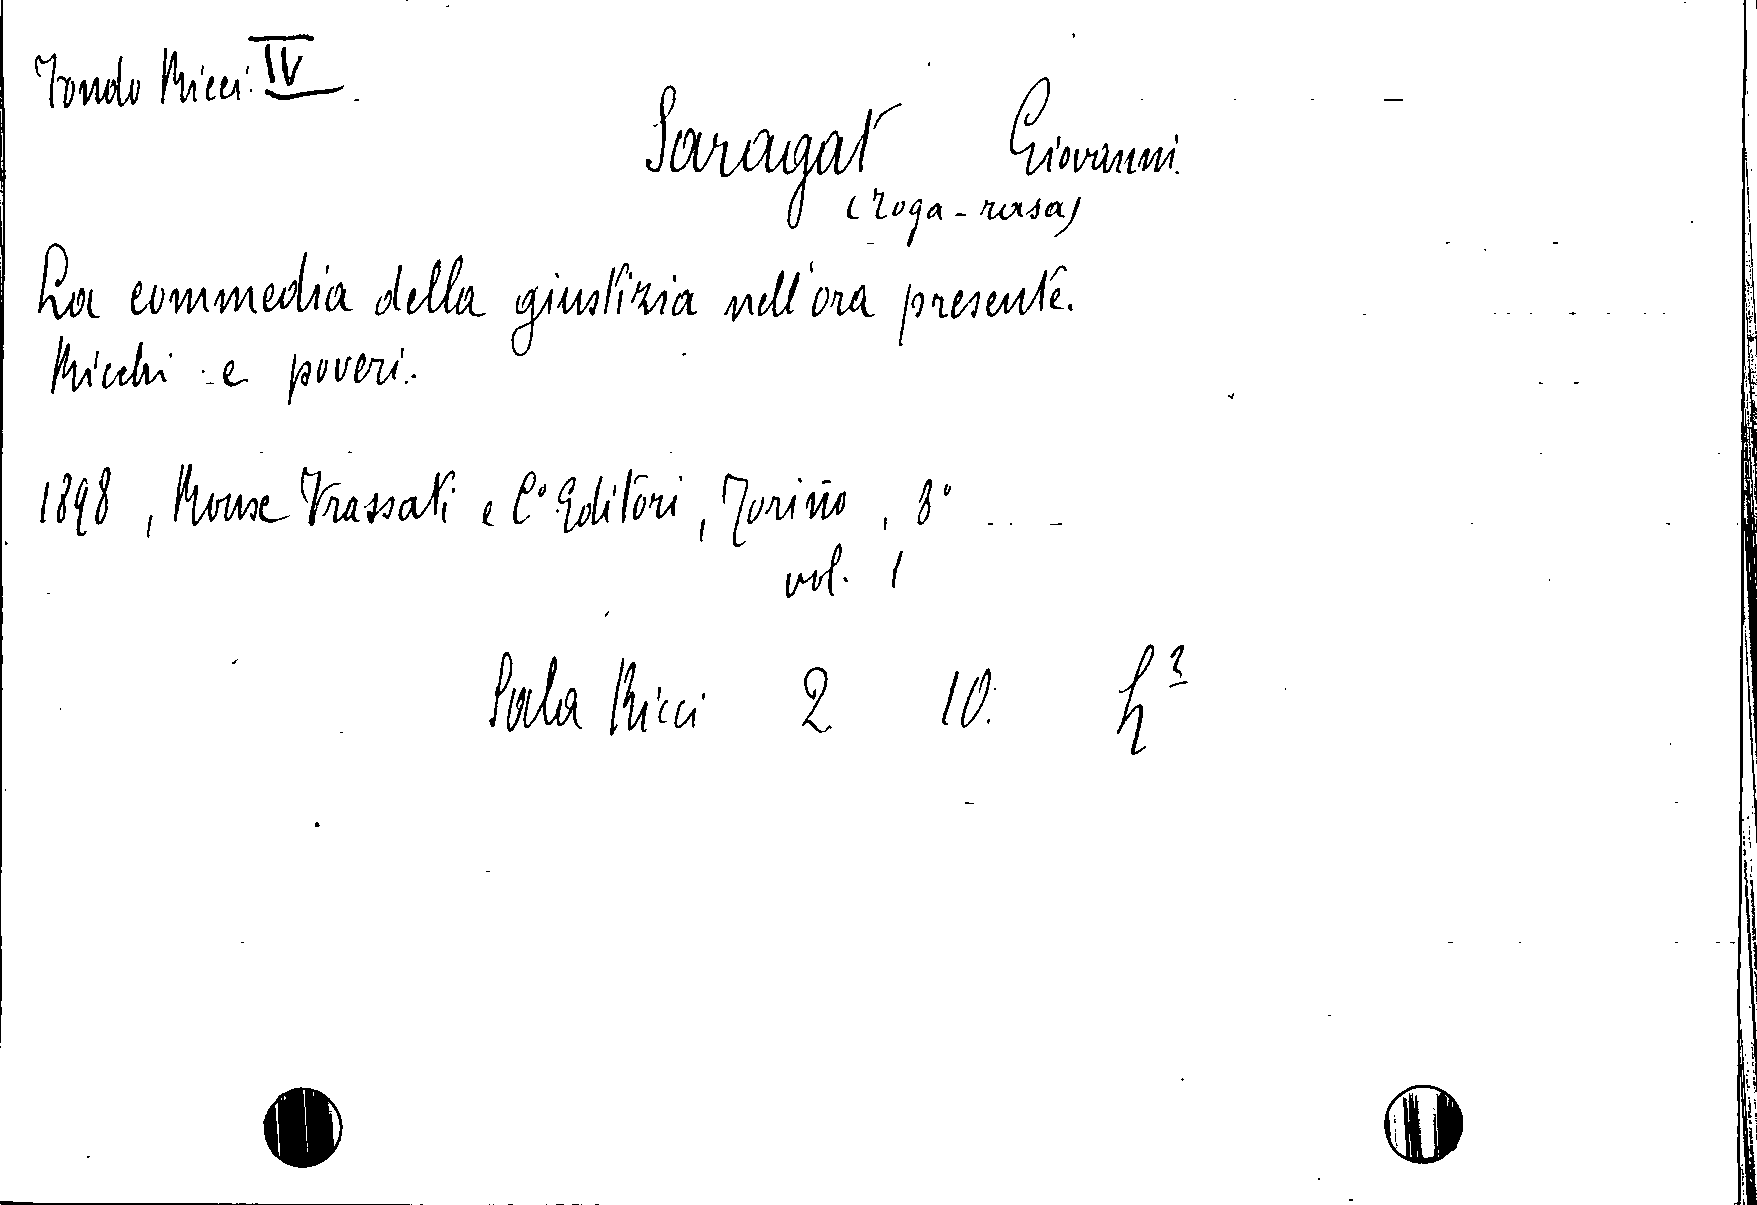 Fondo Ricci IV
Saragat Giovanni.
(Toga-rasa)
La commedia della giustizia nell'ora presente.
Ricchi e poveri.
1898, Roux Frassati e C° Editori, Torino, 8°
vol. 1
Sala Ricci 2 10. h³